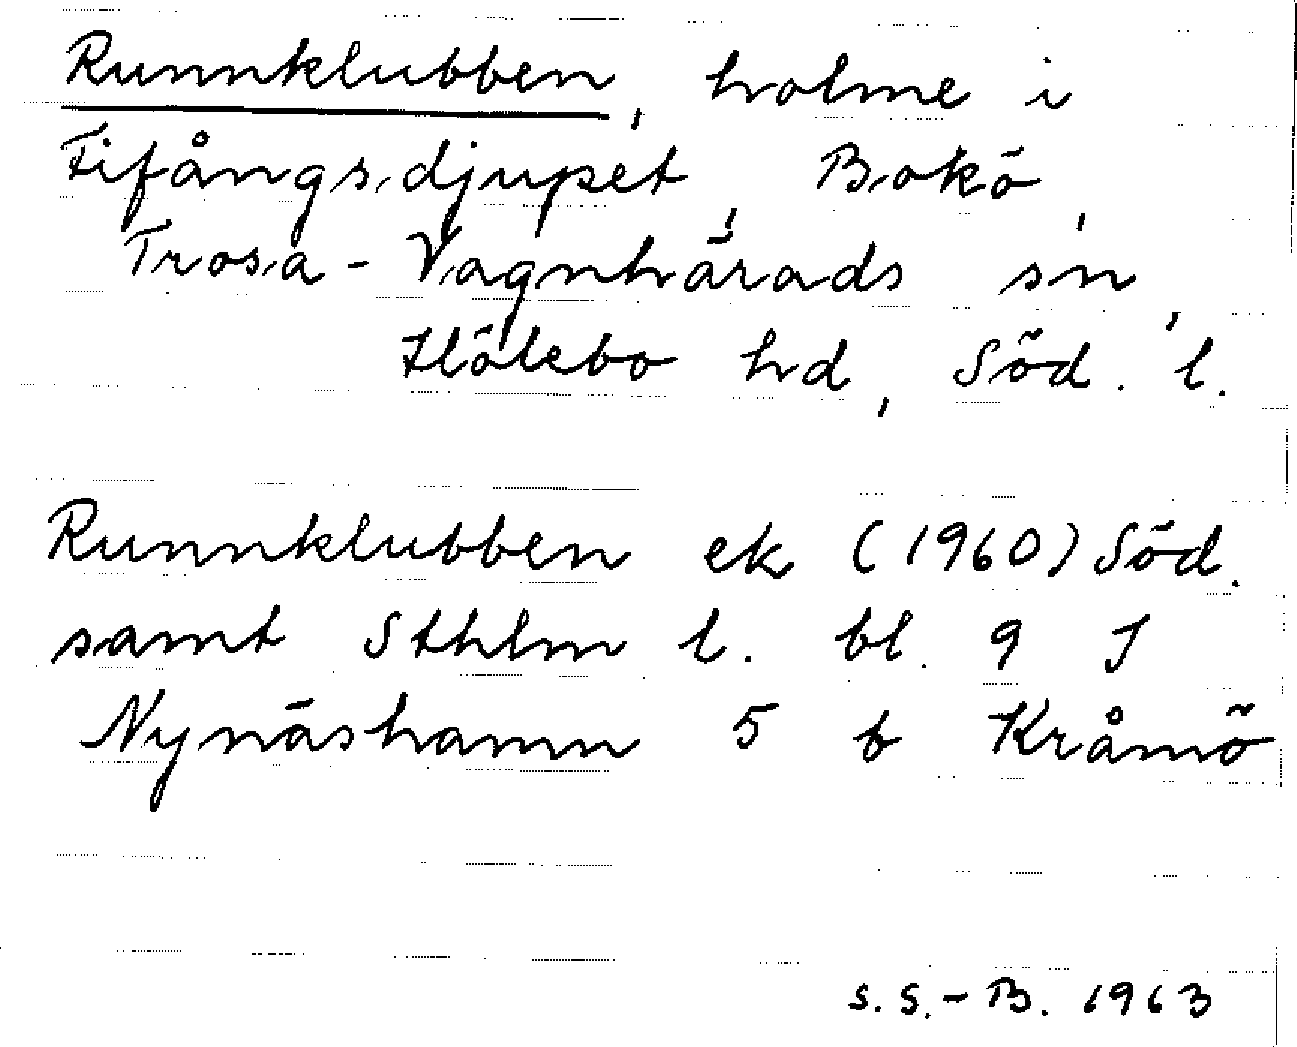 Runnklubben, holme i
Fifångsdjupet, Bokö,
Trosa-Vagnhärads sn,
Hölebo hd, Söd. l.
Runnklubben ek (1960) Söd.
samt Sthlm l. bl. 9 J
Nynäshamn 5 b Kråmö
S.S.-B. 1963